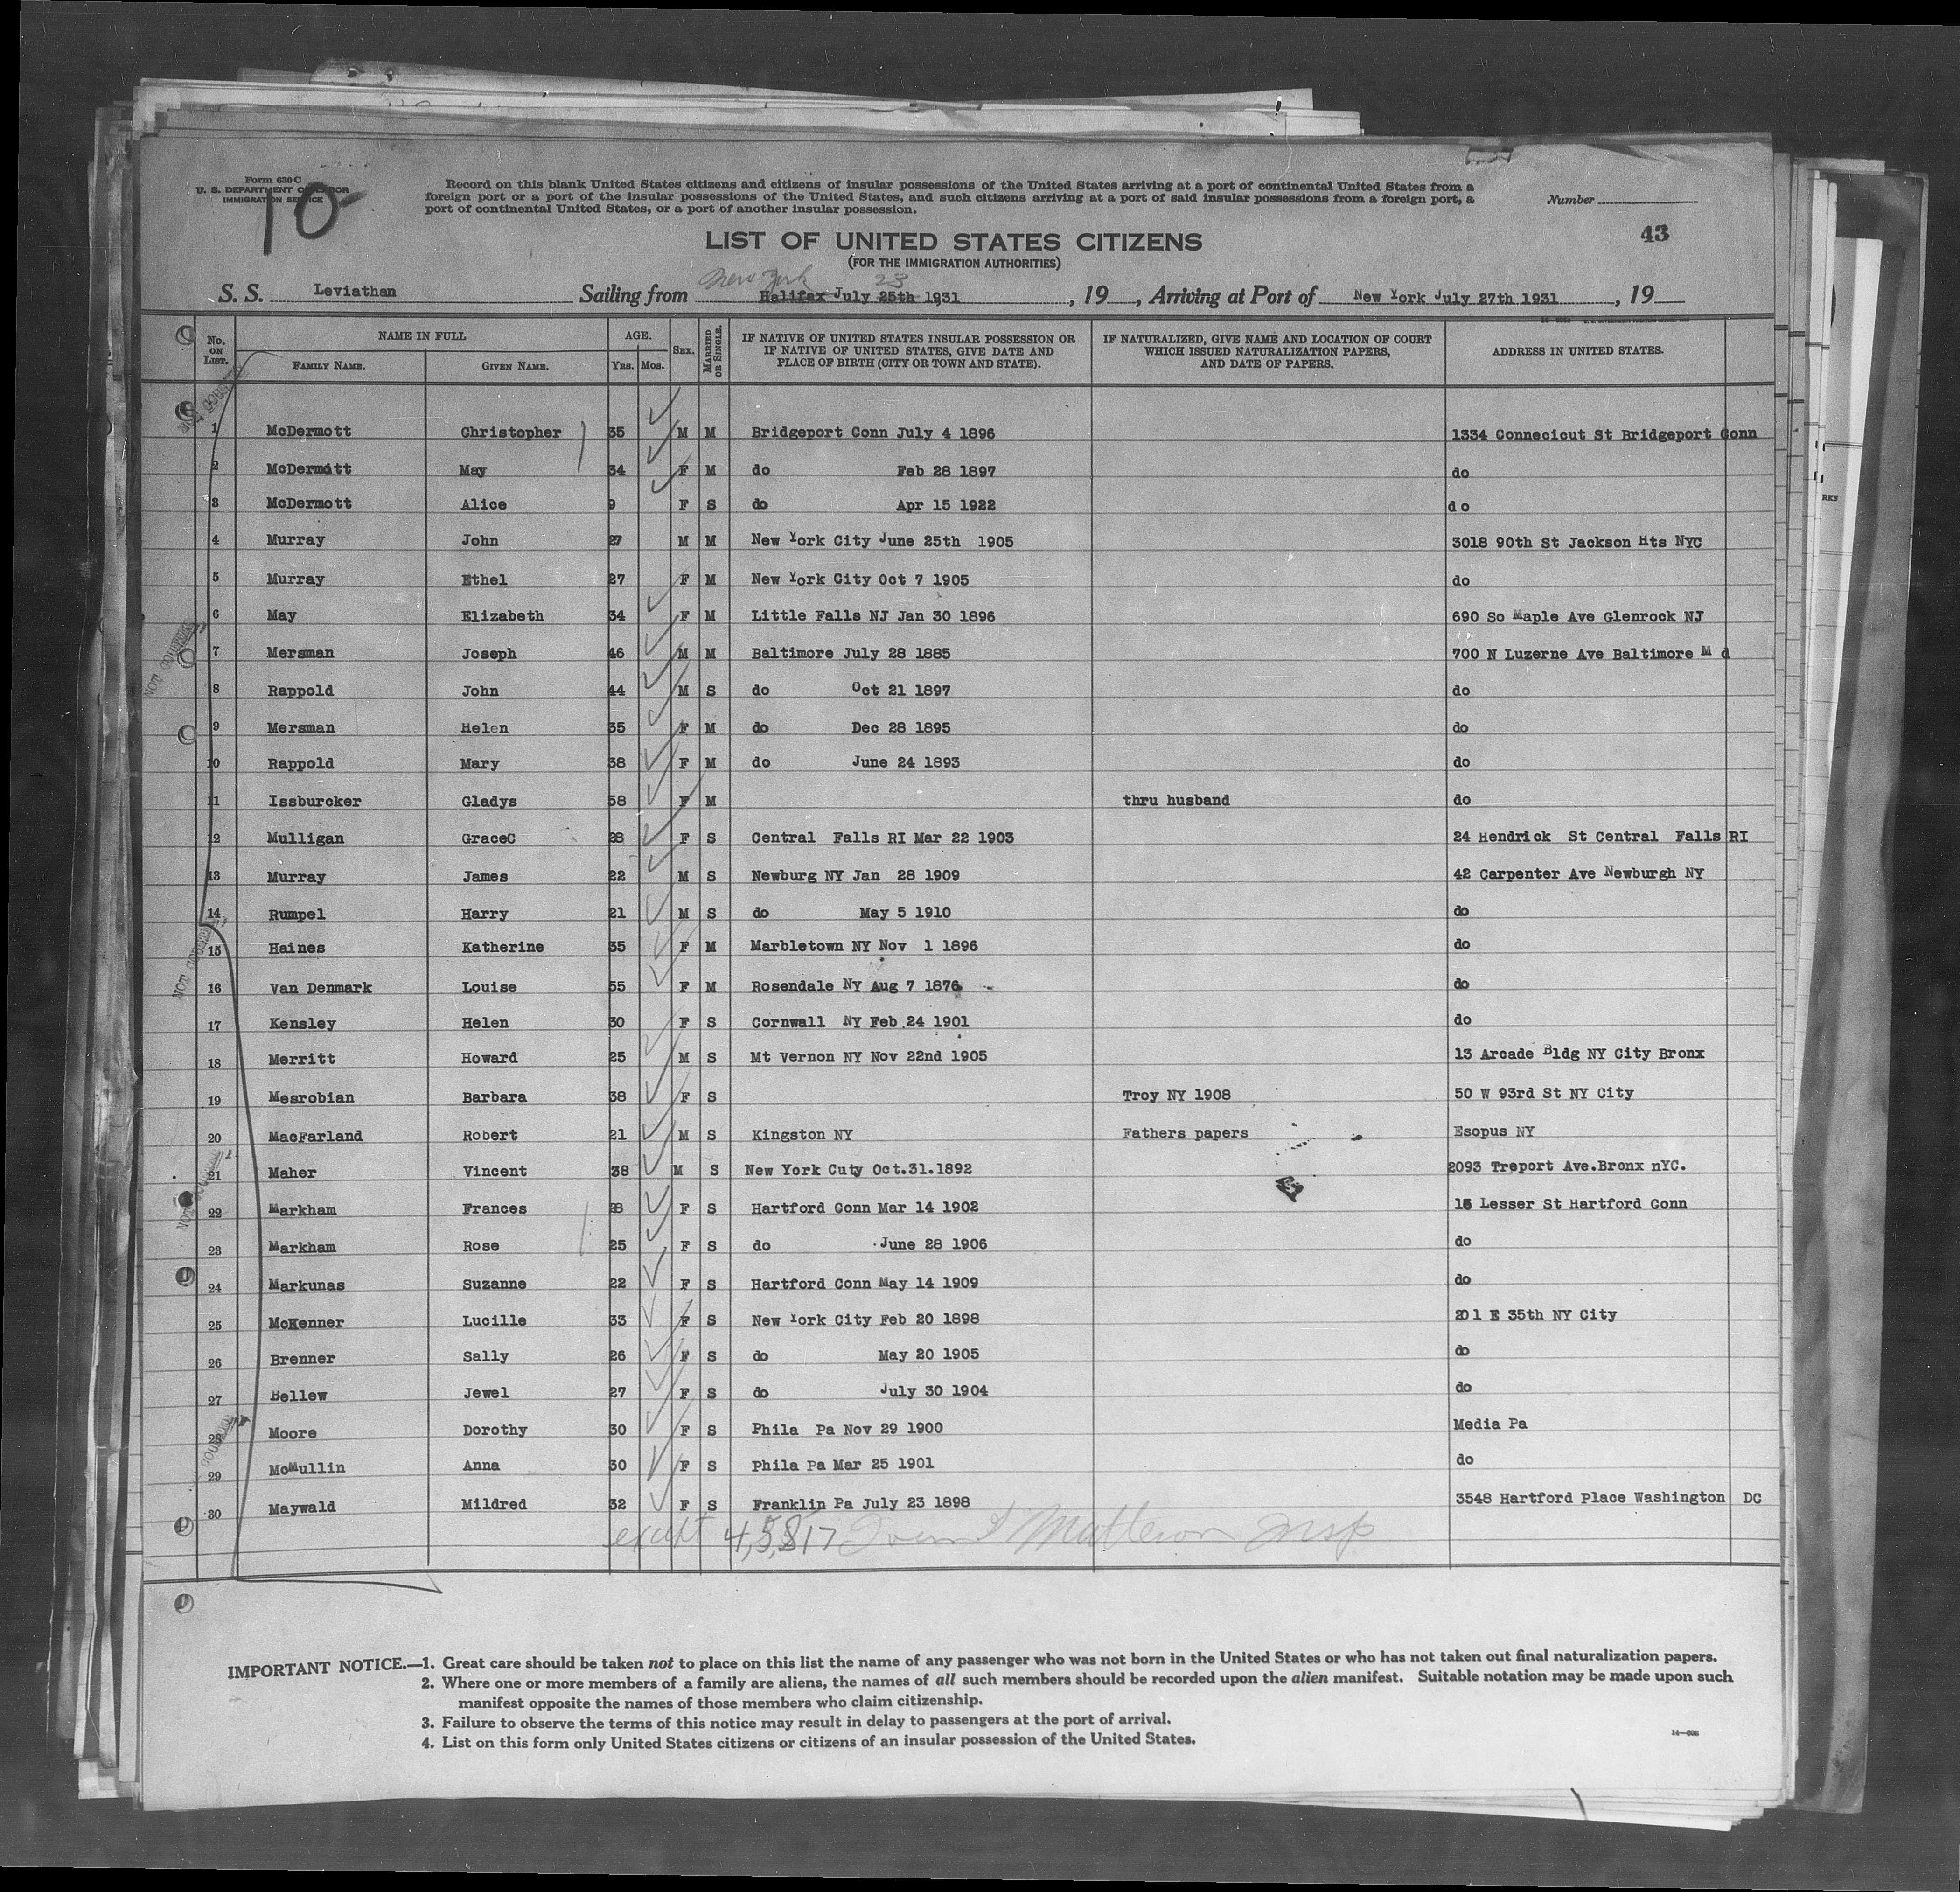 Form 630 C
U. S. DEPARTMENT OF LABOR
IMMIGRATION SERVICE
10
Record on this blank United States citizens and citizens of insular possessions of the United States arriving at a port of continental United States from a
foreign port or a port of the insular possessions of the United States, and such citizens arriving at a port of said insular possessions from a foreign port, a
port of continental United States, or a port of another insular possession.
Number
43
LIST OF UNITED STATES CITIZENS
(FOR THE IMMIGRATION AUTHORITIES)
New York 23
S. S. Leviathan Sailing from Halifax July 25th 1931, 19 , Arriving at Port of New York July 27th 1931, 19
No. ON LIST. NAME IN FULL FAMILY NAME. GIVEN NAME. AGE. YRS. MOS. SEX. MARRIED OR SINGLE. IF NATIVE OF UNITED STATES INSULAR POSSESSION OR IF NATIVE OF UNITED STATES, GIVE DATE AND PLACE OF BIRTH (CITY OR TOWN AND STATE). IF NATURALIZED, GIVE NAME AND LOCATION OF COURT WHICH ISSUED NATURALIZATION PAPERS, AND DATE OF PAPERS. ADDRESS IN UNITED STATES.
1 McDermott Christopher 35 M M Bridgeport Conn July 4 1896 1334 Connecicut St Bridgeport Conn
2 McDermott May 34 F M do Feb 28 1897 do
3 McDermott Alice 9 F S do Apr 15 1922 do
4 Murray John 27 M M New York City June 25th 1905 3018 90th St Jackson Hts NYC
5 Murray Ethel 27 F M New York City Oct 7 1905 do
6 May Elizabeth 34 F M Little Falls NJ Jan 30 1896 690 So Maple Ave Glenrock NJ
7 Mersman Joseph 46 M M Baltimore July 28 1885 700 N Luzerne Ave Baltimore M d
8 Rappold John 44 M S do Oct 21 1897 do
9 Mersman Helen 35 F M do Dec 28 1895 do
10 Rappold Mary 38 F M do June 24 1893 do
11 Issburcker Gladys 58 F M thru husband do
12 Mulligan GraceC 28 F S Central Falls RI Mar 22 1903 24 Hendrick St Central Falls RI
13 Murray James 22 M S Newburg NY Jan 28 1909 42 Carpenter Ave Newburgh NY
14 Rumpel Harry 21 M S do May 5 1910 do
15 Haines Katherine 35 F M Marbletown NY Nov 1 1896 do
16 Van Denmark Louise 55 F M Rosendale NY Aug 7 1876 do
17 Kensley Helen 30 F S Cornwall NY Feb 24 1901 do
18 Merritt Howard 25 M S Mt Vernon NY Nov 22nd 1905 13 Arcade Bldg NY City Bronx
19 Mesrobian Barbara 38 F S Troy NY 1908 50 W 93rd St NY City
20 MacFarland Robert 21 M S Kingston NY Fathers papers Esopus NY
21 Maher Vincent 38 M S New York Cuty Oct.31.1892 2093 Treport Ave.Bronx nYC.
22 Markham Frances 28 F S Hartford Conn Mar 14 1902 15 Lesser St Hartford Conn
23 Markham Rose 25 F S do June 28 1906 do
24 Markunas Suzanne 22 F S Hartford Conn May 14 1909 do
25 McKenner Lucille 33 F S New York City Feb 20 1898 201 E 35th NY City
26 Brenner Sally 26 F S do May 20 1905 do
27 Bellew Jewel 27 F S do July 30 1904 do
28 Moore Dorothy 30 F S Phila Pa Nov 29 1900 Media Pa
29 McMullin Anna 30 F S Phila Pa Mar 25 1901 do
30 Maywald Mildred 32 F S Franklin Pa July 23 1898 3548 Hartford Place Washington DC
except 4,5,8,17 Insp
IMPORTANT NOTICE.—1. Great care should be taken not to place on this list the name of any passenger who was not born in the United States or who has not taken out final naturalization papers.
2. Where one or more members of a family are aliens, the names of all such members should be recorded upon the alien manifest. Suitable notation may be made upon such
manifest opposite the names of those members who claim citizenship.
3. Failure to observe the terms of this notice may result in delay to passengers at the port of arrival.
4. List on this form only United States citizens or citizens of an insular possession of the United States.